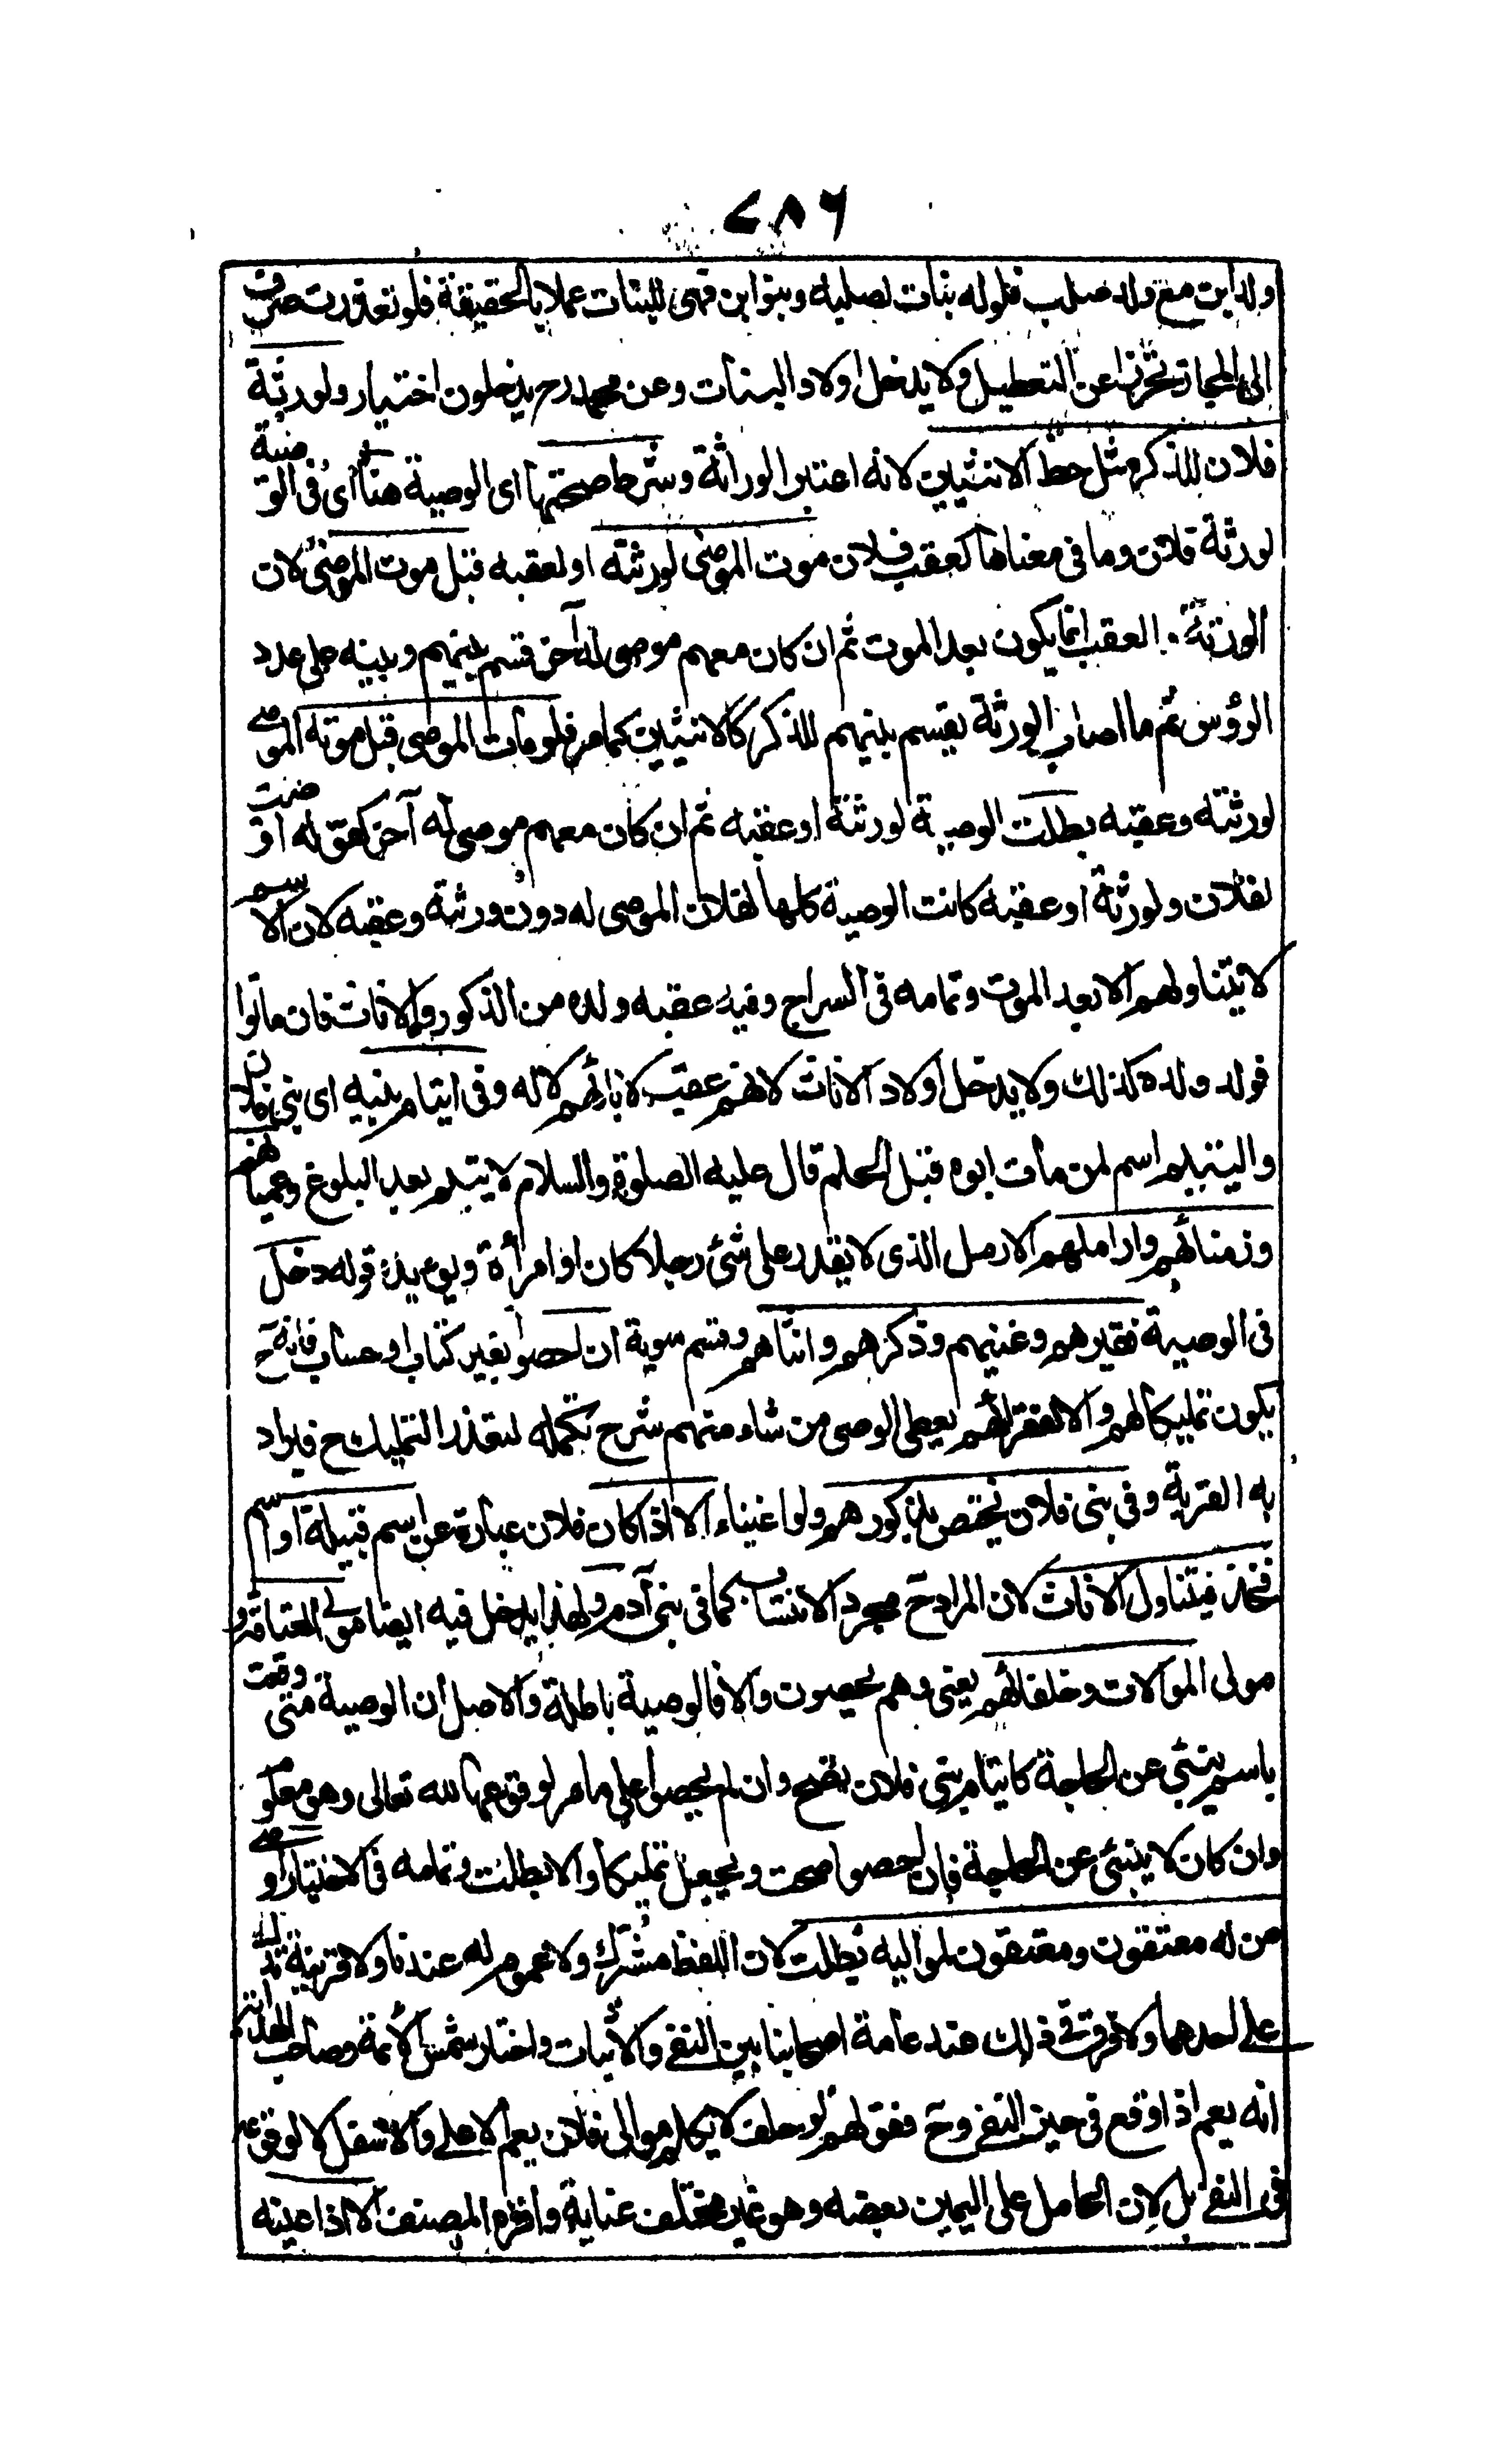 ٧٨٦
ولد ابن مع ولد صلب فلوله بنات لصلبه وبنوا ابن فهى للبنات عملا بالحقيقة فلو تعذرت صرف
الى المجاز تحرزا عن التعطيل ولا يدخل اولاد البنات وعن محمد رح يدخلون اختيار ولورثة
فلان للذكر مثل حظ الانثيين لانه اعتبر الوراثة وشرط صحتها اى الوصية هنا اى فى الوصية
لورثة فلان وما فى معناها كعقب فلان موت الموصى لورثته او لعقبه قبل موت الموصى لان
الورثة العقب انما يكون بعد الموت ثم ان كان معهم موصى له آخر قسم بينهم وبينه على عدد
الرؤس ثم ما اصاب الورثة يقسم بينهم للذكر كالانثيين كما مر فلو مات الموصى قبل موته الموصى
لورثته وعقبه بطلت الوصية لورثته او عقبه ثم ان كان معهم موصى له آخر كقوله اوصيت
لفلان ولورثة او عقبه كانت الوصية كلها لفلان الموصى له دون ورثته وعقبه لان الاسم
لا يتناولهم الا بعد الموت وتمامه فى السراج وفيه عقبه ولده من الذكور والاناث فان ماتوا
فولد ولده كذلك ولا يدخل اولاد الاناث لانهم عقب لابائهم لا له وفى ايتام بنيه اى بنى فلان
واليتيم اسم لمن مات ابوه قبل الحلم قال عليه الصلوة والسلام لا يتم بعد البلوغ وعميانهم
وزمنائهم واراملهم الارمل الذى لا يقدر على شئ رجلا كان او امرأة ويؤيده قوله دخل
فى الوصية فقيرهم وغنيهم وذكرهم وانثاهم وقسم سوية ان احصوا بغير كتاب او حساب فانه ح
يكون تمليكا لهم والا لفقرائهم يعطى الوصى من شاء منهم شرح تكمله لتعذر التمليك ح فيراد
به القربة وفى بنى فلان يختص بذكورهم ولو اغنياء الا اذا كان فلان عبارة عن اسم قبيلة او اسم
فخذ فيتناول الاناث لان المراد ح مجرد الانتساب كما فى بنى آدم ولهذا يدخل فيه ايضا مولى العتاقة و
مولى الموالات وخلفائهم يعنى وهم يحصون والا فالوصية باطلة والاصل ان الوصية متى وقعت
باسم ينبئ عن الحاجة كايتام بنى فلان يصح وان لم يحصوا على ما مر لوقوعها لله تعالى وهو معلوم
وان كان لا ينبئ عن الحاجة فان احصوا صحت ويجعل تمليكا والا بطلت وتمامه فى الاختيار اوصى
من له معتقون ومعتقون لمواليه بطلت لان اللفظ مشترك ولا عموم له عندنا ولا قرينة تدل
على احدهما ولا فرق فى ذلك عند عامة اصحابنا بين النفى والاثبات واختار شمس الائمة وصاحب الهداية
انه يعم اذا وقع فى حيز النفى وح فقولهم لو حلف لا يكلم موالى فلان يعم الاعلى والاسفل لا لوقوعه
فى النفى بل لان الحامل على اليمين بغضه وهو غير مختلف عناية واقره المصنف الا اذا عينه